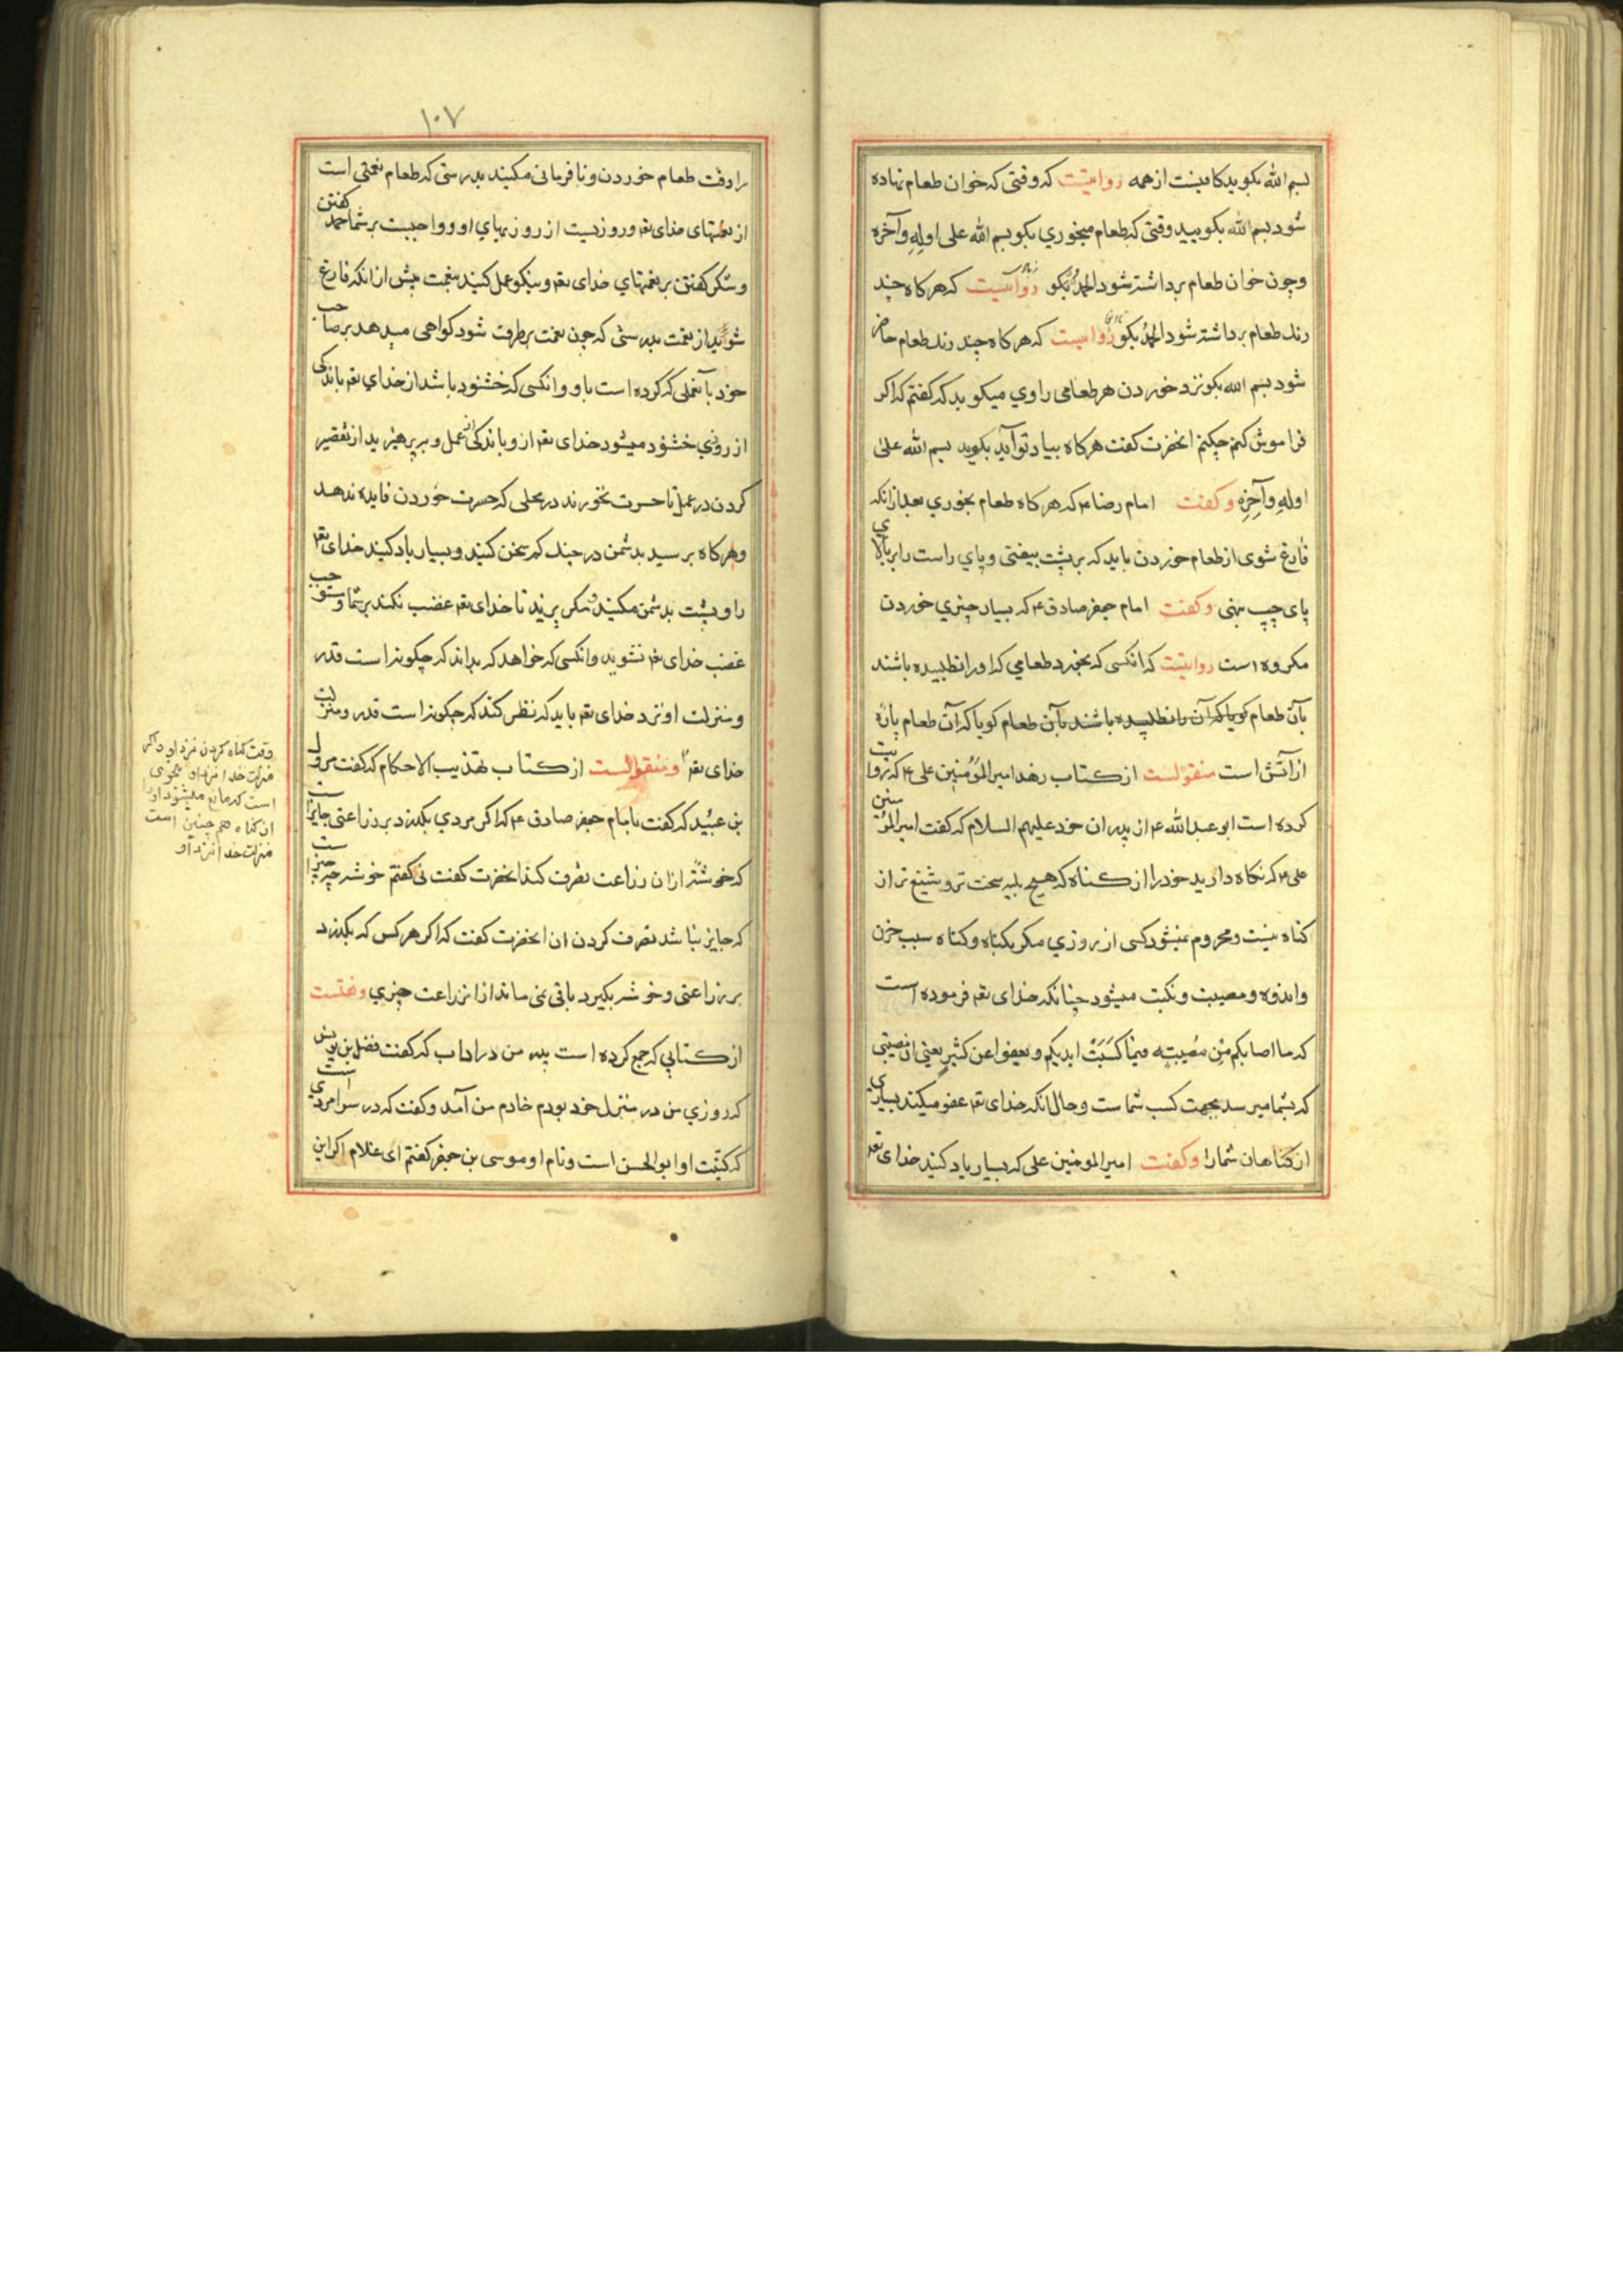 بسم الله بکوید کافیست از همه روایتست که وقتی که خوان طعام نهاده
شود بسم الله بکویید وقتی که طعام میخوری بکو بسم الله علی اوله وآخره
وچون خوان طعام برداشته شود الحمد لله بکو روایتست که هرکاه چند
رنك طعام برداشته شود الحمد لله بکو روایتست که هرکاه چند رنك طعام حاضر
شود بسم الله بکو نزد خوردن هر طعامی راوي میکوید که کفتم که اکر
فراموش کنم چکنم انحضرت کفت هرکاه بیاد تو آید بکوید بسم الله علی
اولِهِ وآخِرِهِ وکفت امام رضا ع که هرکاه طعام بخوري بعد از انکه
فارغ شوی از طعام خوردن باید که بر پشت بیفتی وپاي راست را بر بالای
پاي چپ نهی وکفت امام جعفر صادق ع که بسیار چیزي خوردن
مکروه است روایتست که انکسی که بخورد طعامي که او را نطلبیده باشند
بآن طعام کویا که آن را نطلبیده باشند بآن طعام کویا که آن طعام پارۀ
از آتش است منقولست از کتاب زهد امیر المؤمنین علی ع که روایت
کرده است ابو عبد الله ع از پدران خود علیهم السلام که کفت امیر المؤمنین
علی ع که نکاه دارید خود را از کناه که هیچ بلیه سخت تر وشنیع تر از
کناه نیست ومحروم نمیشود کسی از روزي مکر بکناه وکناه سبب حزن
واندوه ومصیبت ونکبت میشود چنانکه خدای تع فرموده است
که ما اصابکم مِن مُصیبته فبما کَسَبَتْ ایدیکم ویعفوا عن کثیرٍ یعنی آن مصیبتی
که بشما میرسد بجهت کسب شما ست وحال انکه خدای تع عفو میکند بسیاری
از کناهان شما را وکفت امیر المومنین علی که بسیار یاد کنید خدای تع
۱۰۷
را وقت طعام خوردن ونافرمانی مکنید بدرستی که طعام نعمتی است
از نعمتهای خدای تع وروزیست از روزیهاي او وواجبست بر شما حمد کفتن
وشکر کفتن بر نعمتهاي خدای تع ونیکو عمل کنید بنعمت پیش از انکه فارغ
شوید از نعمت بدرستی که چون نعمت برطرف شود کواهی میدهد بر صاحب
خود بآنعملی که کرده است باو وانکسی که خشنود باشد از خداي تع باندکی
از روزي خشنود میشود خدای تع از و باندکی از عمل وبپرهیزید از تقصیر
کردن در عمل تا حسرت نخورند در محلی که حسرت خوردن فایده ندهد
وهرکاه برسید بدشمن در جنك کم سخن کنید وبسیار یاد کنید خدای تع
را وپشت بدشمن مکنید ومکریزید تا خدای تع غضب نکند بر شما ومستوجب
غضب خدای تع نشوید وانکسی که خواهد که بداند که چکونه است قدر
ومنزلت او نزد خدای تع باید که نظر کند که چکونه است قدر ومنزلت
خدای تع ومنقولست از کتاب تهذیب الاحکام که کفت مروك
بن عبید که کفت بامام جعفر صادق ع که اکر مردي بکذرد بر زراعتی جایز است
که خوشۀ از ان زراعت تصرف کند انحضرت کفت نی کفتم خوشه چه چیز است
که جایز نباشد تصرف کردن ان انحضرت کفت که اکر هر کس که بکذرد
بر زراعتی وخوشه بکیرد باقی نمی ماند از ان زراعت چیزي
از کتابي که جمع کرده است پدر من در اداب که کفت فضل بن یونس
که روزي من در منزل خود بودم خادم من آمد وکفت که در سرا مردي است
که کنیت او ابو الحسن است ونام او موسی بن جعفر کفتم ای غلام اکر این
وقت کناه کردن نزد او واکر
منزلت خدا نزد او بنحوی
است که مانع میشود او را
از کناه هم چنین است
منزلت خدا نزد او